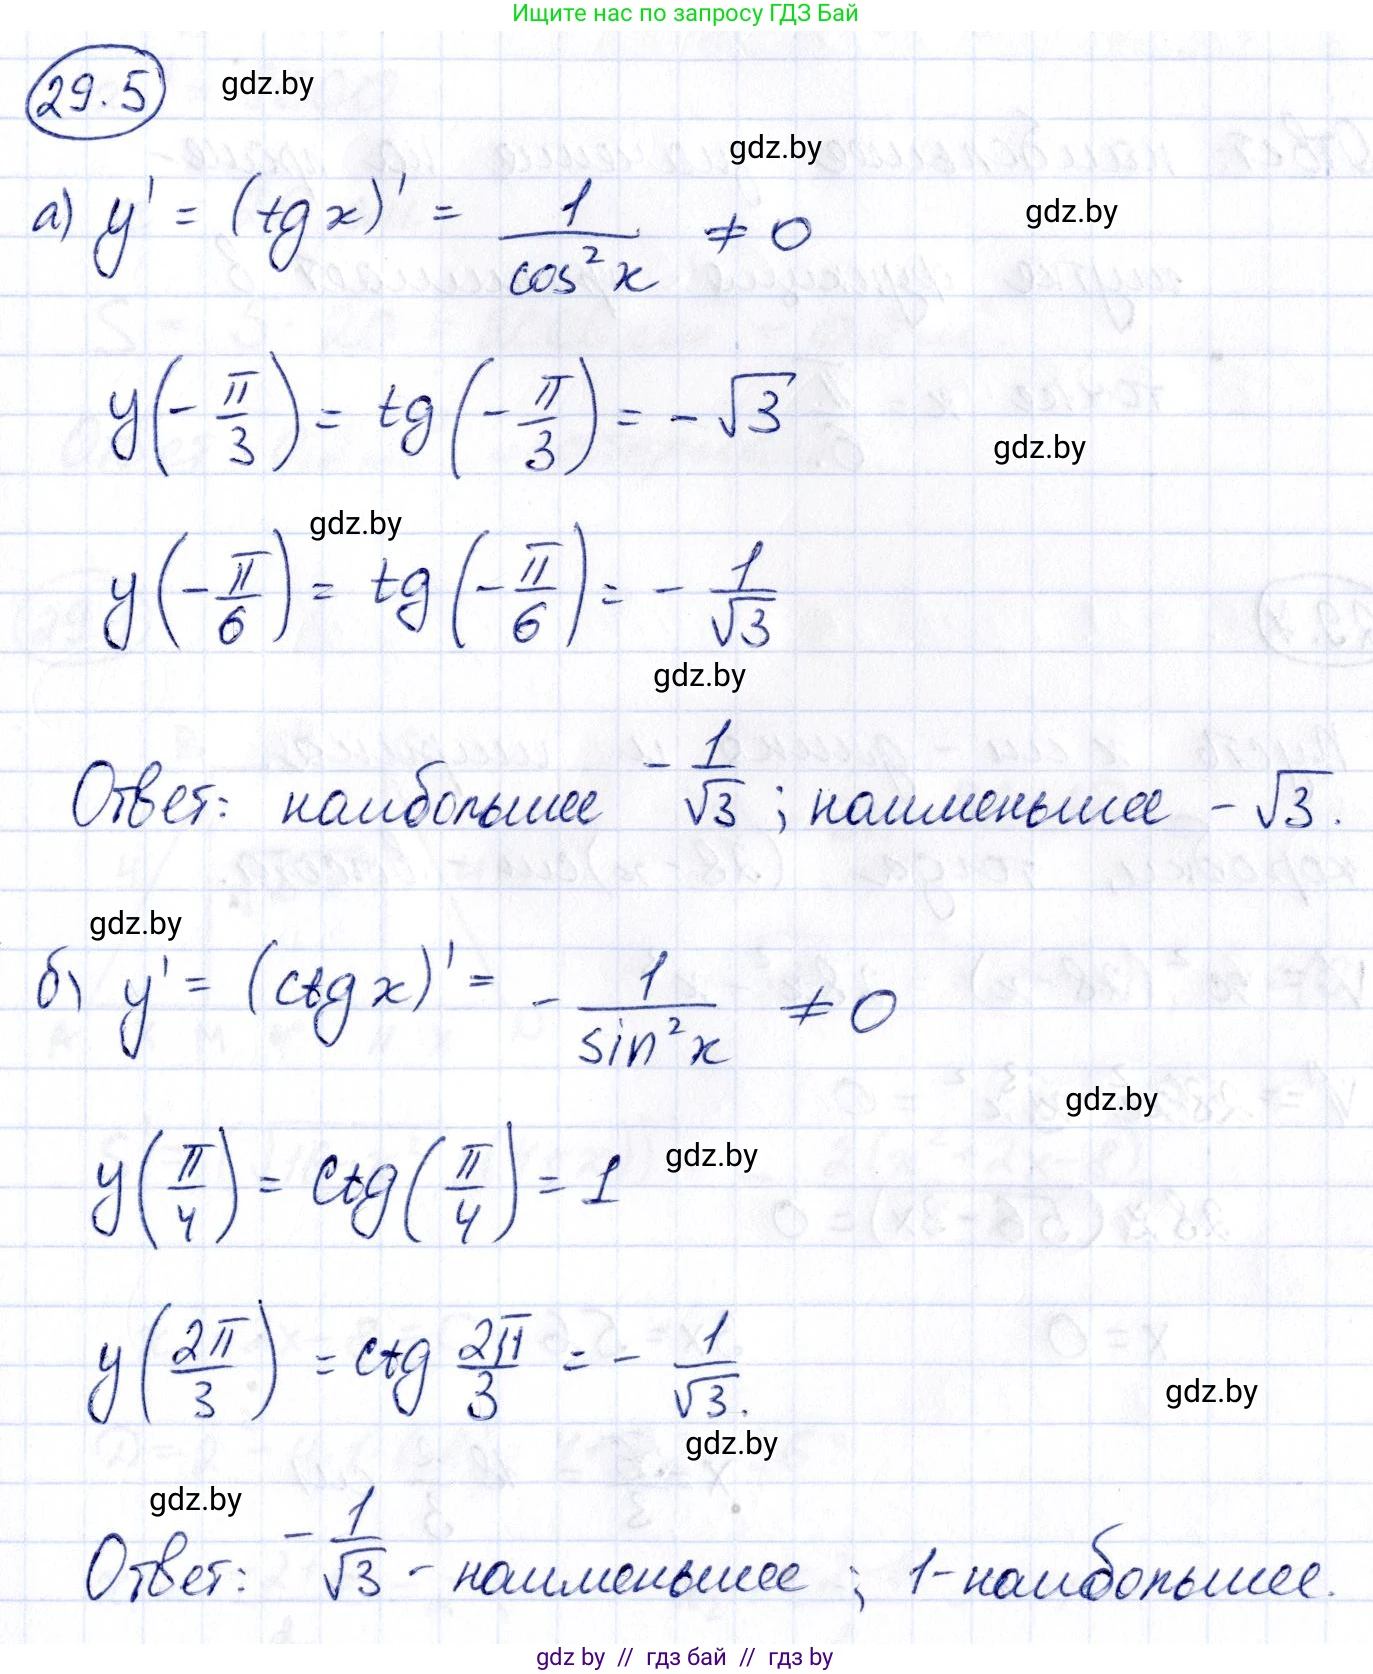 Ищите нас по запросу ГДЗ Бай
29.5 gdz.by
gdz.by
а) y' = (tg x)' = 1/cos²x ≠ 0 gdz.by
y(-π/3) = tg(-π/3) = -√3
gdz.by
gdz.by
y(-π/6) = tg(-π/6) = -1/√3
gdz.by
Ответ: наибольшее -1/√3; наименьшее -√3.
gdz.by
б) y' = (ctg x)' = -1/sin²x ≠ 0
gdz.by
y(π/4) = ctg(π/4) = 1 gdz.by
y(2π/3) = ctg 2π/3 = -1/√3.
gdz.by
gdz.by
gdz.by
Ответ: -1/√3 - наименьшее; 1-наибольшее.
gdz by // гдз бай // гдз by